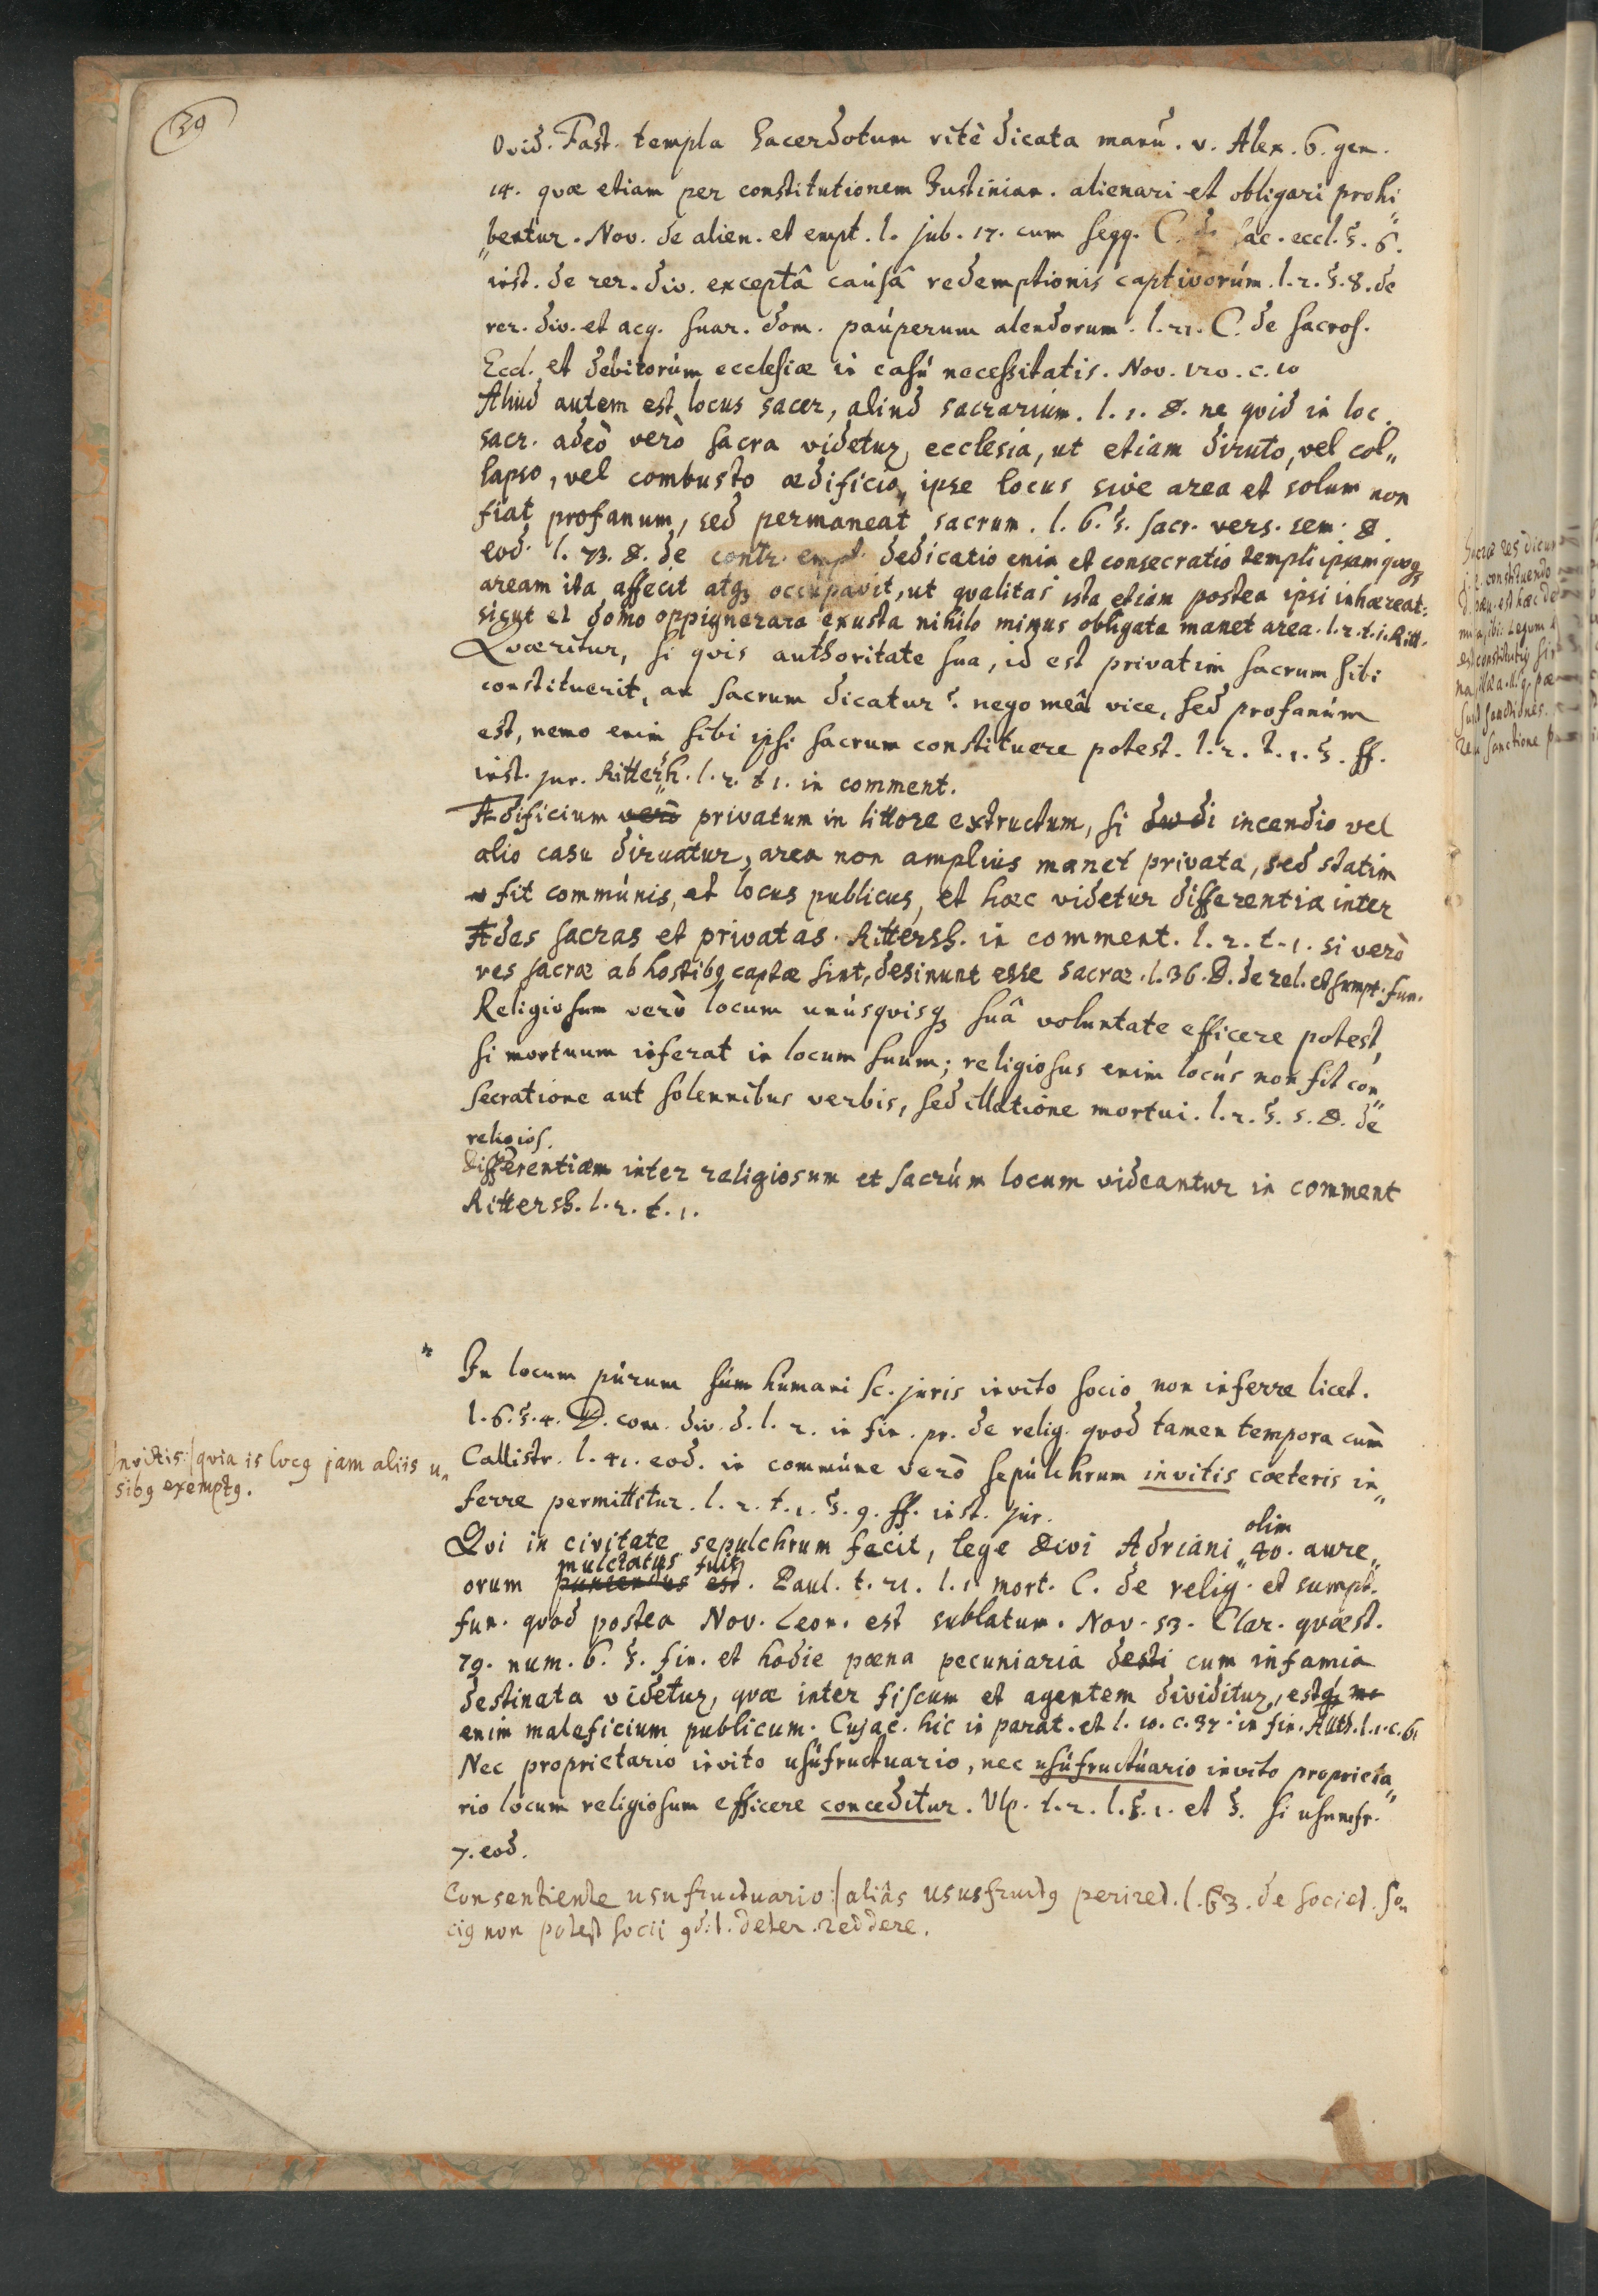 39
Ovid. Fast. templa Sacerdotum ritè dicata manu. v. Alex. 6. gen.
14. quæ etiam per constitutionem Justinian. alienari et obligari prohi„
„bentur. Nov. de alien. et empt. l. jub. 17. cum seqq. C. de sac. eccl. §. 6.
inst. de rer. div. exceptâ causâ redemptionis captivorúm. l. 2. §. 8. de
rer. div. et acq. suar. dom. paúperum alendorum. l. 21. C. de sacros.
Eccl. et debitorúm ecclesiæ in casú necessitatis. Nov. 120. c. 10
Aliud autem est locus sacer, aliud sacrarium. l. 1. D. ne quid in loc.
sacr. adeò verò sacra videtur ecclesia, ut etiam diruto, vel col„
lapso, vel combusto ædificio, ipse locus sive area et solum non
fiat profanum, sed permaneat sacrum. l. 6. §. sacr. vers. sem. D.
eod. l. 73. D. de contr. empt. dedicatio enim et consecratio templi ipsam quoqȝ
aream ita affecit atqȝ occupavit, ut qualitas ista etiam postea ipsi inhæreat:
sicut et domo oppignerara exusta nihilo minus obligata manet area. l. 2. t. 1. Ritt.
Quæritur, si quis authoritate sua, id est privatim sacrum sibi
constituerit, an sacrum dicatur? nego meâ vice, sed profanúm
est, nemo enim sibi ipsi sacrum constituere potest. l. 2. t. 1. §. ff.
inst. jur. Rittersh. l. 2. t. 1. in comment.
Ædificium verò privatum in littore extructum, si dudi incendio vel
alio casu diruatur, area non amplius manet privata, sed statim
fit commúnis, et locus publicus, et hæc videtur differentia inter
Ædes sacras et privatas. Rittersh. in comment. l. 2. t. 1. si verò
res sacræ ab hostibꝰ captæ sint, desinunt esse sacræ. l. 36. D. de rel. et sumpt. fun.
Religiosum verò locum unúsquisqȝ suâ voluntate efficere potest,
si mortuum inferat in locum suum; religiosus enim locús non fit con„
secratione aut solennibus verbis, sed illatione mortui. l. 2. §. 5. D. de
religios.
Differentiam inter religiosum et sacrúm locum videantur in comment
Rittersh. l. 2. t. 1.
In locum púrum súm húmani sc. juris invito socio non inferre licet.
l. 6. §. 4. D. com. div. d. l. 2. in fin. pr. de relig. quod tamen tempora cum
Callistr. l. 41. eod. in commúne verò sepúlchrum invitis cæteris in„
ferre permittitur. l. 2. t. 1. §. 9. ff. inst. jur.
Invitis:/ quia is locꝰ jam aliis u„
sibꝰ exemptꝰ.
Qui in civitate sepulchrum fecit, lege Divi Adriani olim 40. aure„
orum puniendus est mulctatus fuit. Paul. t. 21. l. 1. mort. C. de relig. et sumpt.
fun. quod postea Nov. Leon. est sublatum. Nov. 53. Clar. quæst.
79. num. 6. §. fin. et hodie pæna pecuniaria desti cum infamia
destinata videtur, quæ inter fiscum et agentem dividitur, est
enim maleficium publicum. Cujac. hic in parat. et l. 10. c. 37. in fin. Auth. l. 1. c. 6.
Nec proprietario invito usúfructuario, nec usúfructúario invito proprieta„
rio locum religiosum efficere conceditur. Ulp. t. 2. l. §. 1. et §. si usumfr.
7. eod.
Consentiente usufructuario:/ aliâs ususfructꝰ periret. l. 63. de societ. So„
ciꝰ non potest socii deter. reddere.